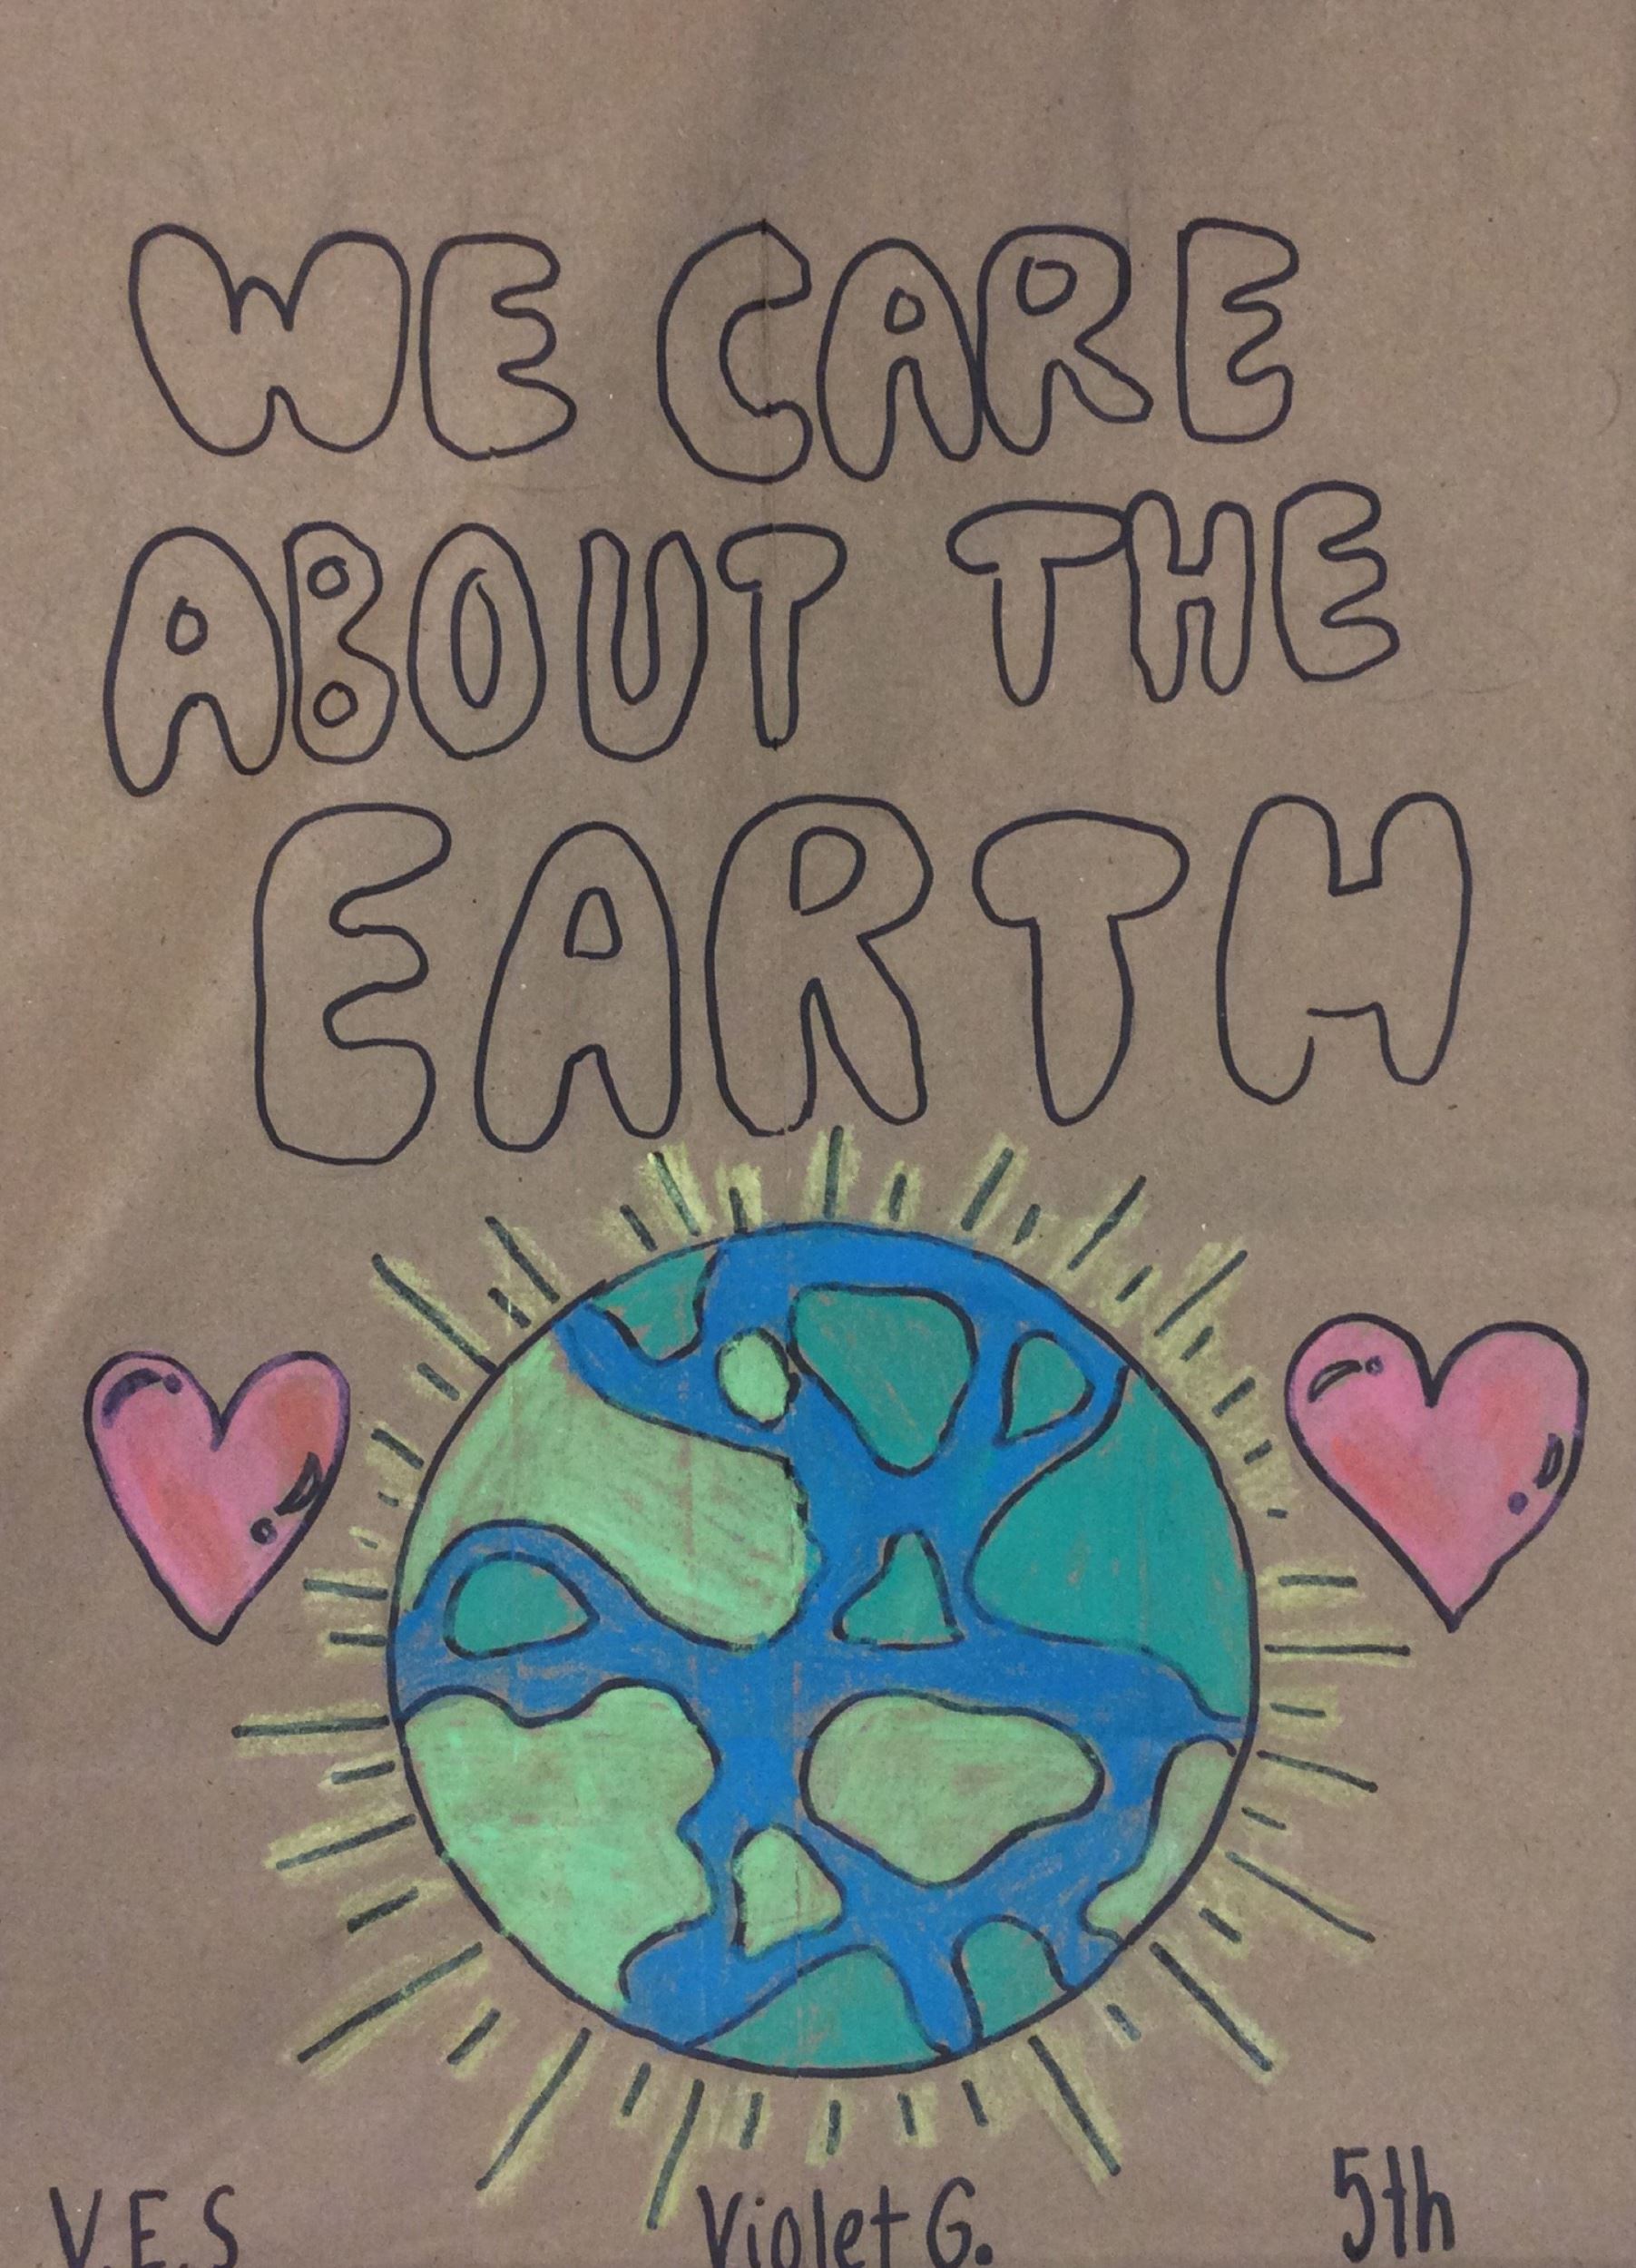 WE CARE
ABOUT THE
EARTH
V.E.S Violet G. 5th